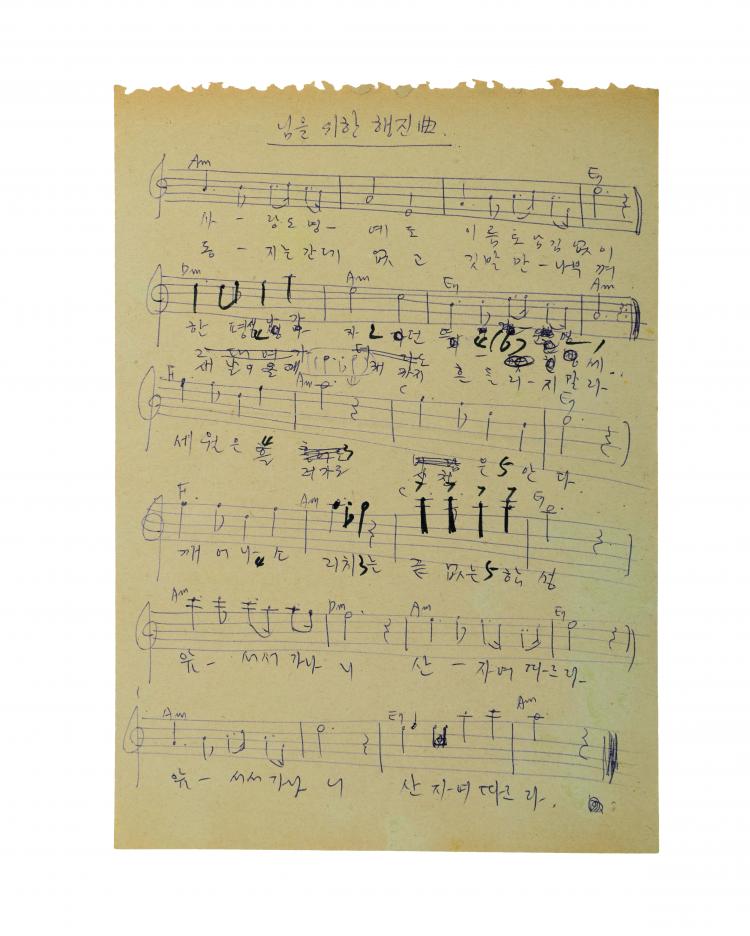 님을 위한 행진曲.
Am E7
사 - 랑도 명 - 예도 이름도 남김 없이
동 - 지는 간데 없고 깃발만 - 나부껴
Dm Am E7 Am
한 평생 나가자던
새 날이 올때 까지 흔들리 - 지말라
F Am C E7
세월은 흘
러가도 산천은 안다
F Am C E7
깨어나소 리치는 끝없는 함성
Am Dm Am E7
앞 - 서서 가나니 산 - 자여 따르라
Am E7 Am
앞 - 서서 가나니 산자여 따르라.